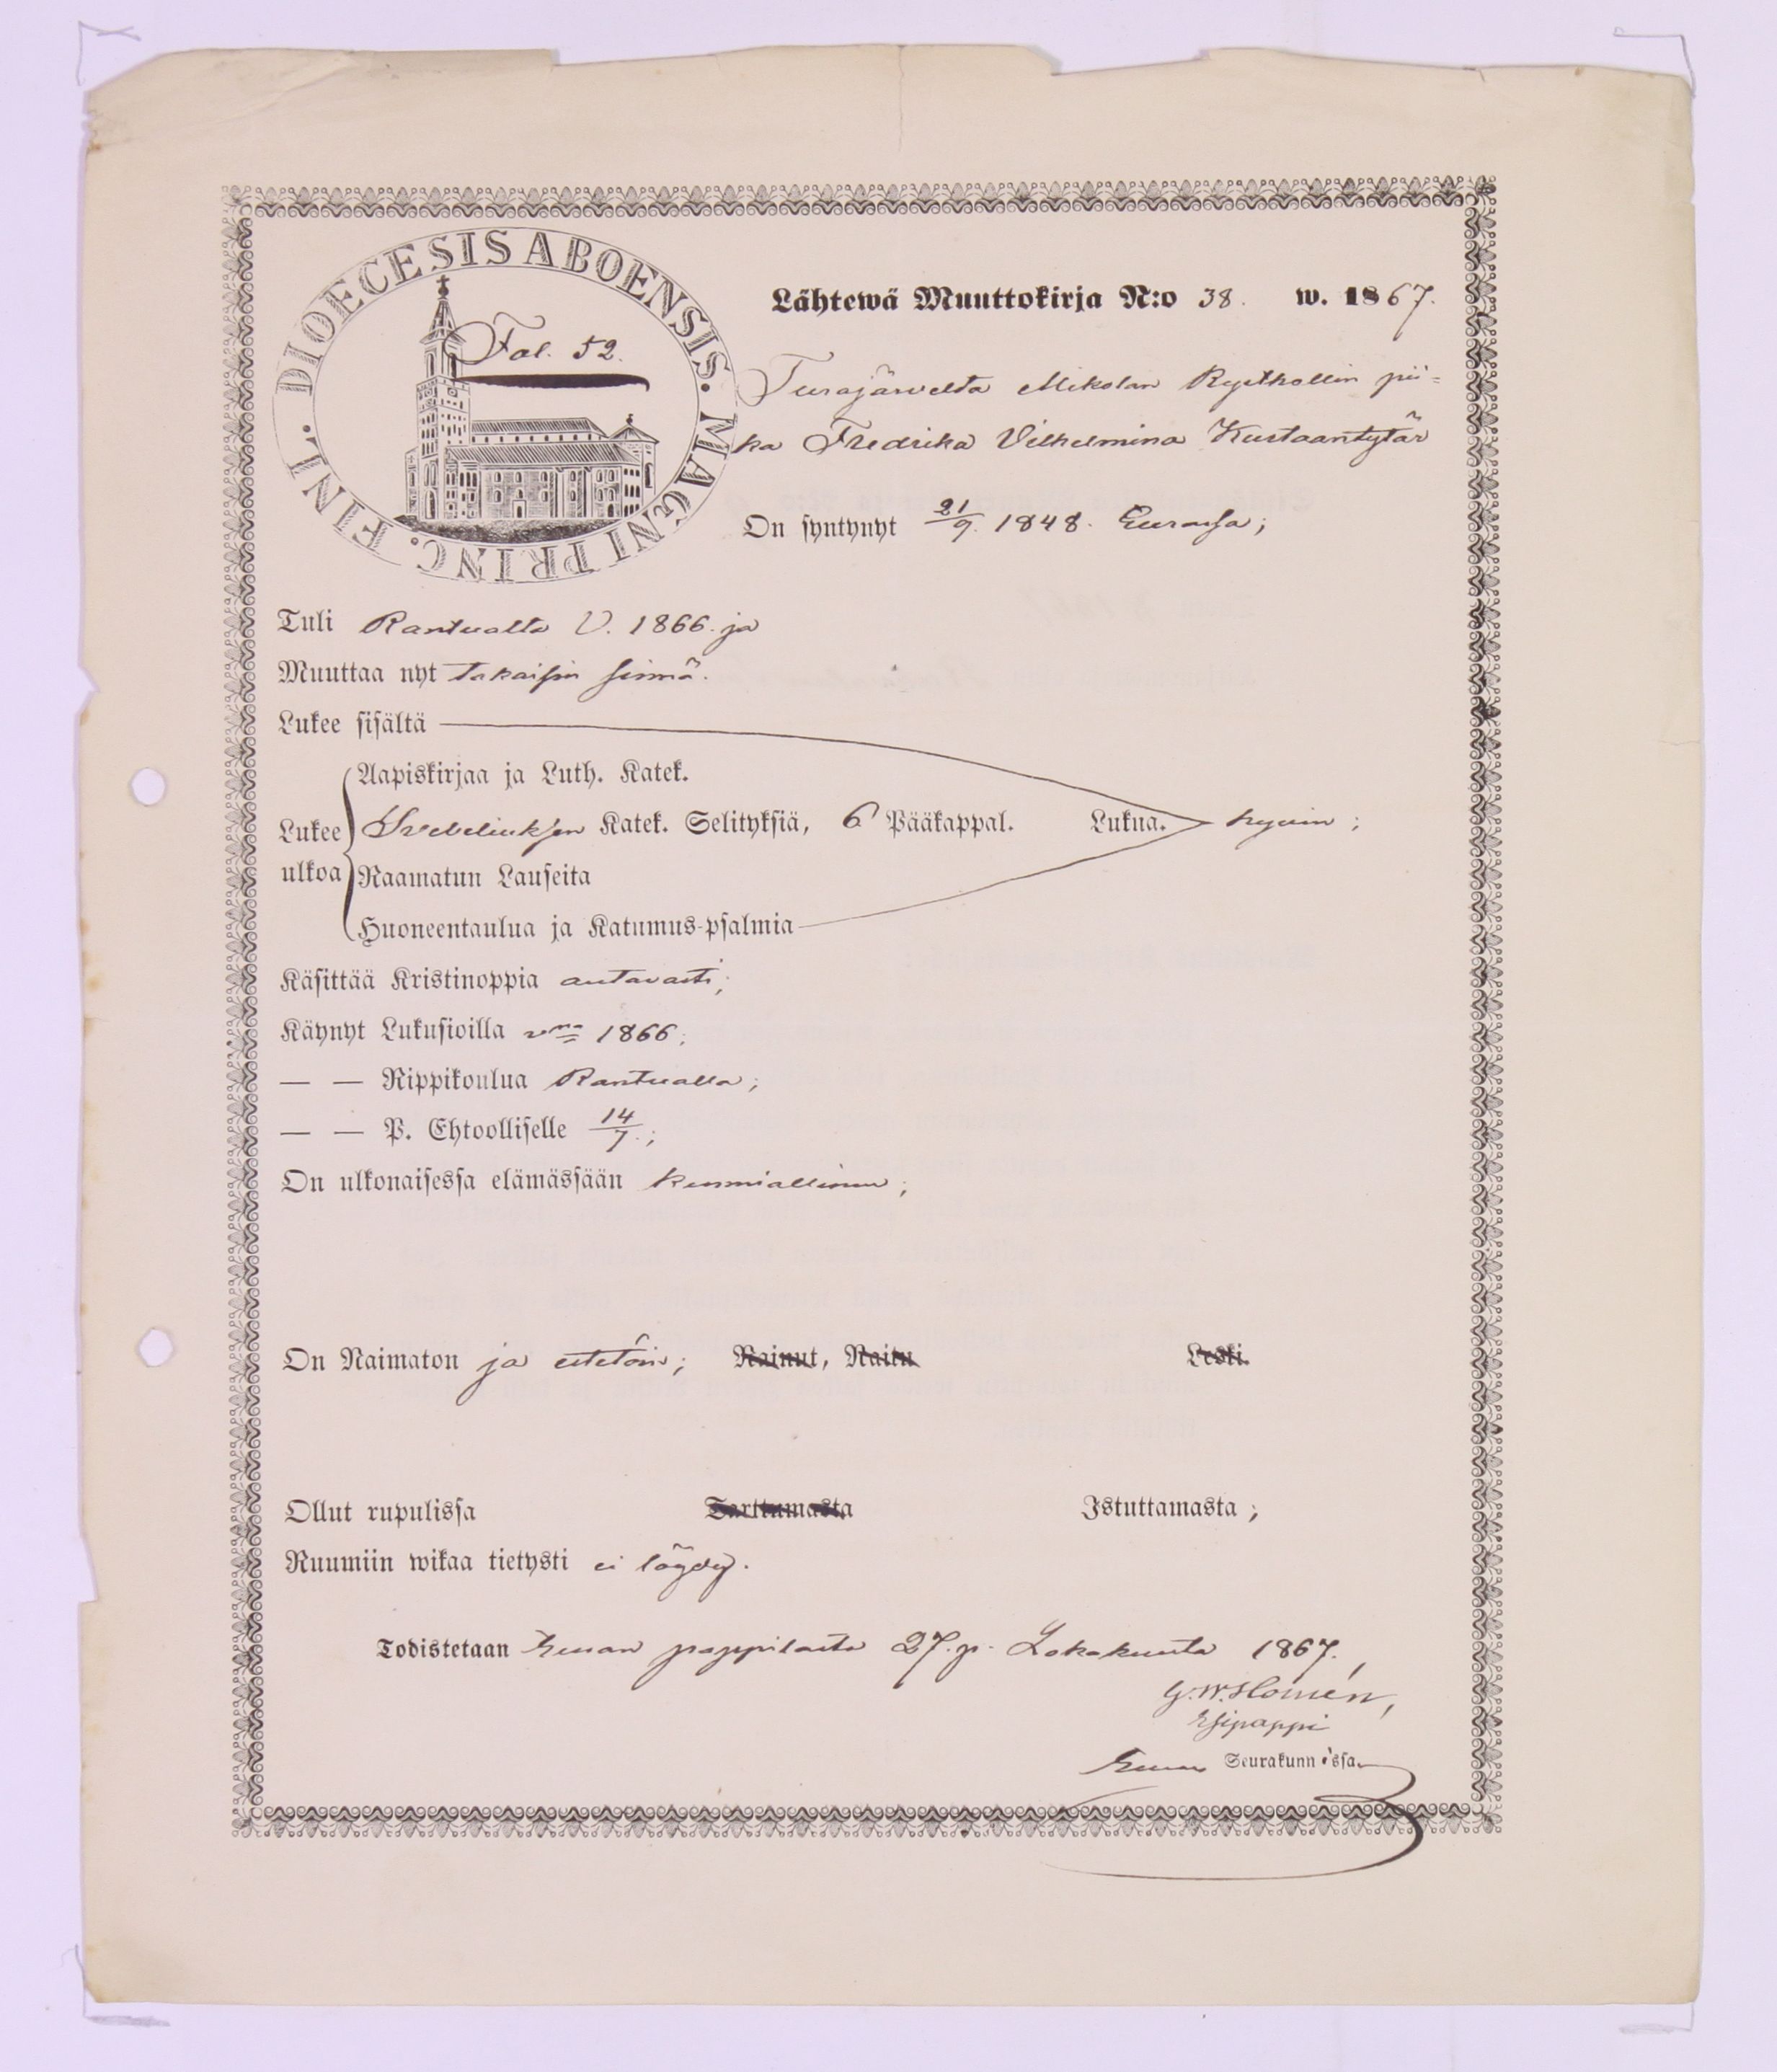 DIOECESIS ABOENSIS. MAGNI PRINC. FINL.
Fol. 52.
Lähtewä Muuttokirja N:o 38. w. 1867.
Turajärveltä Mikolan Rysthollin pii=
ka Fredrika Vilhelmina Kustaantytär
On syntynyt 21/9. 1848. Eurassa;
Tuli Rantualta V. 1866. ja
Muuttaa nyt takaisin sinnä.
Lukee sisältä
Aapiskirjaa ja Luth. Katek.
Lukee ulkoa Svebeliuksen Katek. Selityksiä, 6 Pääkappal. Lukua. hyvin;
Raamatun Lauseita
Huoneentaulua ja Katumus-psalmia
Käsittää Kristinoppia auttavasti;
Käynyt Lukusioilla vna 1866;
— — Rippikoulua Rantualla;
— — P. Ehtoolliselle 14/7.;
On ulkonaisessa elämässään kunniallinen;
On Naimaton ja estetöin; Nainut, Naitu Leski.
Ollut rupulissa Tarttumasta Istuttamasta;
Ruumiin wikaa tietysti ei löydy.
Todistetaan Euran pappilasta 27. p. Lokakuuta 1867.
G. W. Homén,
Esipappi
Euran Seurakunn issa.